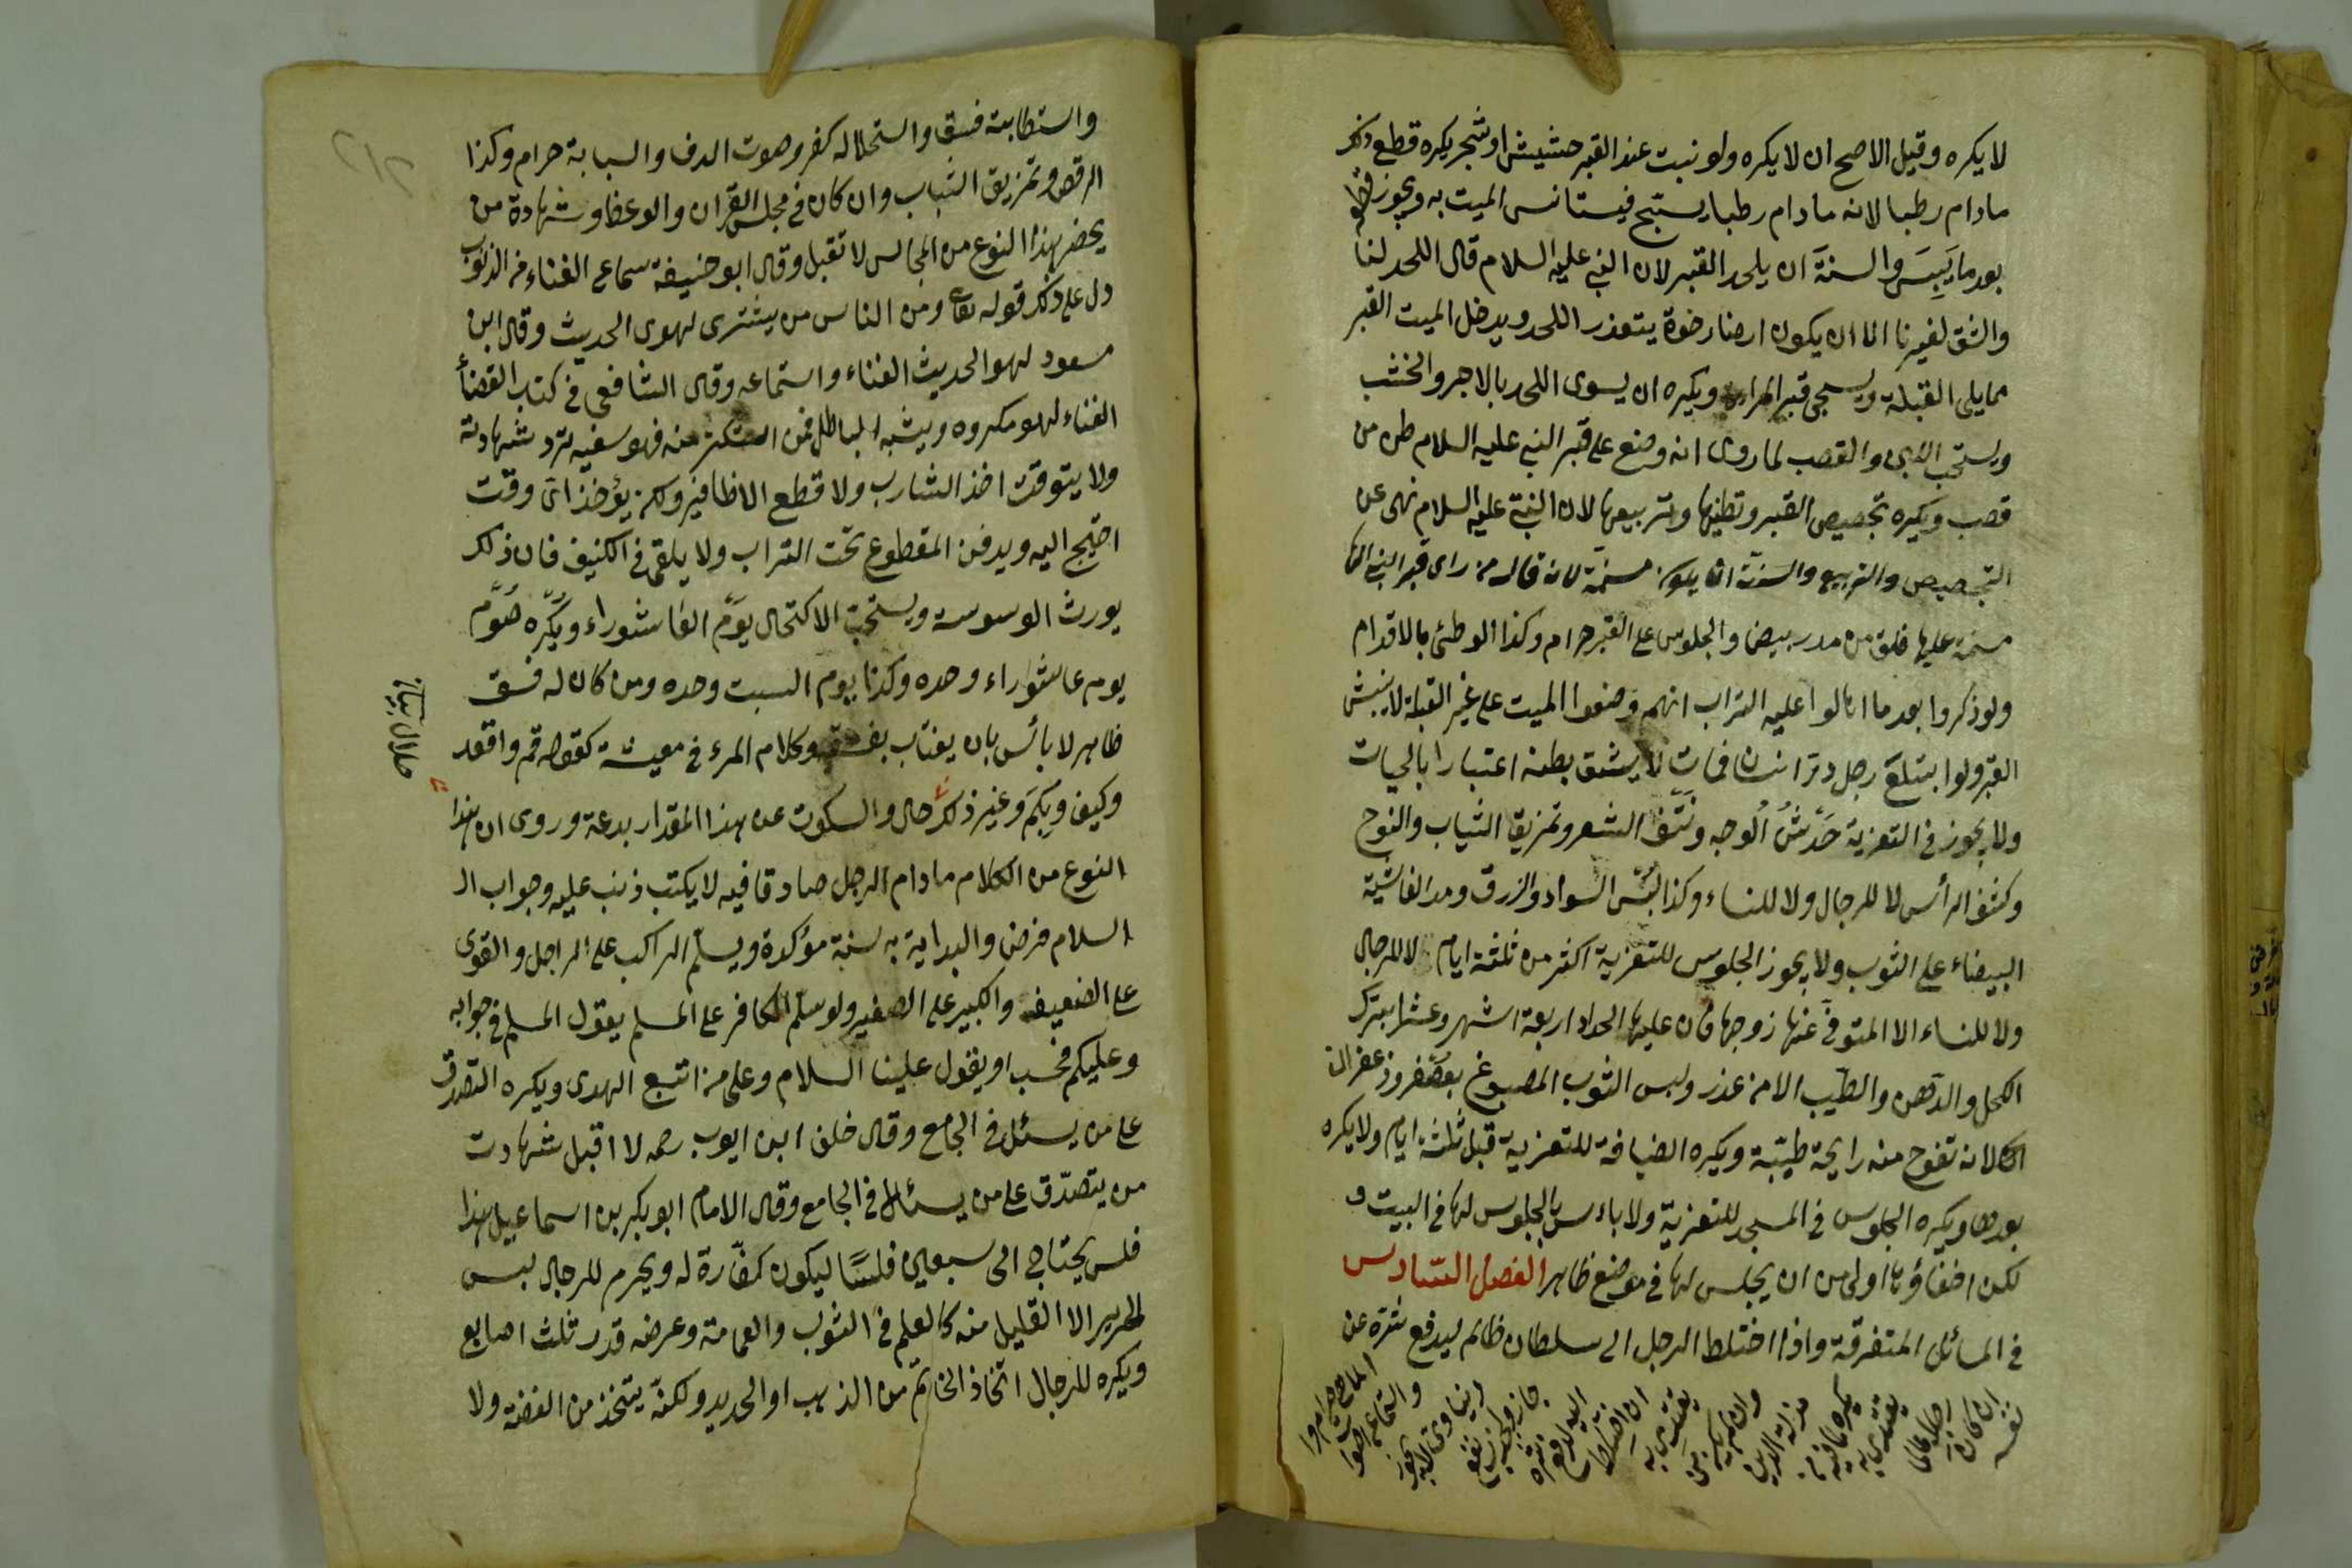 لا يكره وقيل الاصح ان لا يكره ولو نبت عند القبر حشيش او شجر يكره قطع ذلك
ما دام رطبا لانه ما دام رطبا يستبح فيستانس الميت به ويجوز قطعه
بعد ما يَبِسَ والسنة ان يلحد القبر لان النبي عليه السلام قال اللحد لنا
والشق لغيرنا الا ان يكون ارضا رخوة يتعذر اللحد ويدخل الميت القبر
مما يلى القبلة ويسجى قبر المراة ويكره ان يسوى اللحد بالاجر والخشب
ويستحب اللبن والقصب لما روى انه وضع على قبر النبي عليه السلام طن من
قصب ويكره تجصيص القبر وتطينها وتربيعها لان النبي عليه السلام نهى عن
التجصيص والتربيع والسنة ان يكون مسنمة لانه قال من راى قبر النبي انها
مسنمة عليها فلق من مدر بيض والجلوس على القبر حرام وكذا الوطئ بالاقدام
ولو ذكروا بعد ما اهالوا عليه التراب انهم وضعوا الميت على غير القبلة لا ينبش
القبر ولو ابتلع رجل درّ انسان فمات لا يشق بطنه اعتبارا بالحيات
ولا يجوز في التعزية خدش الوجه ونتف الشعر وتمزيق الثياب والنوح
وكشف الرأس لا للرجال ولا للنساء وكذا لبس السواد والزرق ومد الغاشية
البيضاء على الثوب ولا يجوز الجلوس للتعزية اكثر من ثلثة ايام لا للرجال
ولا للنساء الا المتوفى عنها زوجها فان عليها الحداد اربعة اشهر وعشرا بترك
الكحل والدهن والطيب الا من عذر ولبس الثوب المصبوغ بعصفر وزعفران
لانه تفوح منه رايحة طيّبة ويكره الضيافة للتعزية قبل ثلثة ايام ولا يكره
بعدها ويكره الجلوس في المسجد للتعزية ولا باءس بالجلوس لها في البيت و
لكن اخفاؤها اولى من ان يجلس لها في موضع ظاهر الفصل السّادس
في المسائل المتفرقة واذا اختلط الرجل الى سلطان ظالم ليدفع شرّه عن
نفسه
ان كان
رجلا عالما
يقتدى به
يكره لما فيه
مذلة الدين
وان لم يكن
يقتدى به
ان اختلط
اليه ليدفع
شره
جاز
واستطابته فسق واستحلاله كفر وصوت الدف والسبابة حرام وكذا
الرقص وتمزيق الثياب وان كان في مجلس القران والوعظ وشهادة من
يحضر بهذا النوع من المجالس لا تقبل وقال ابو حنيفة سماع الغناء من الذنوب
دل على ذلك قوله تعالى ومن الناس من يشترى لهوى الحديث وقال ابن
مسعود لهو الحديث الغناء واستماعه وقال الشافعى في كتب القضأ
الغناء لهو مكروه ويشبه الباطل فمن استكثر منه فهو سفيه ترد شهادته
ولا يتوقت اخذ الشارب ولا قطع الاظافير ولكن يؤخذ اىّ وقت
احتيج اليه ويدفن المقطوع تحت التراب ولا يلقى في الكنيف فان ذلك
يورث الوسوسة ويستحب الاكتحال يوم العاشوراء ويكره صوم
يوم عاشوراء وحده وكذا يوم السبت وحده ومن كان له فسق
ظاهر لا بائس بان يغتاب بفسقه وكلام المرء في معيشة كقوله قم واقعد
وكيف وبكم وغير ذلك حال والسكوت عن هذا المقدار بدعة وروى ان هذا
النوع من الكلام ما دام الرجل صادقا فيه لا يكتب ذنب عليه وجواب ال
السلام فرض والبداية به سنة مؤكدة ويسلّم الراكب على الراجل والقوى
على الضعيف والكبير على الصغير ولو سلّم الكافر على المسلم يقول المسلم في جوابه
وعليكم فحسب او يقول علينا السلام وعلى من اتبع الهدى ويكره التصدق
على من يسئل في الجامع وقال خلف ابن ايوب رحمه لا اقبل شهادت
من يتصدّق على من يسئال في الجامع وقال الامام ابو بكر بن اسماعيل هذا
فلس يحتاج الى سبعين فلسًا ليكون كفّارة له ويحرم للرجال لبس
الحرير الا القليل منه كالعلم في الثوب والعمامة وعرضه قدر ثلث اصابع
ويكره للرجال اتخاذ الخاتم من الذهب او الحديد ولكنّه يتخذ من الفضة ولا